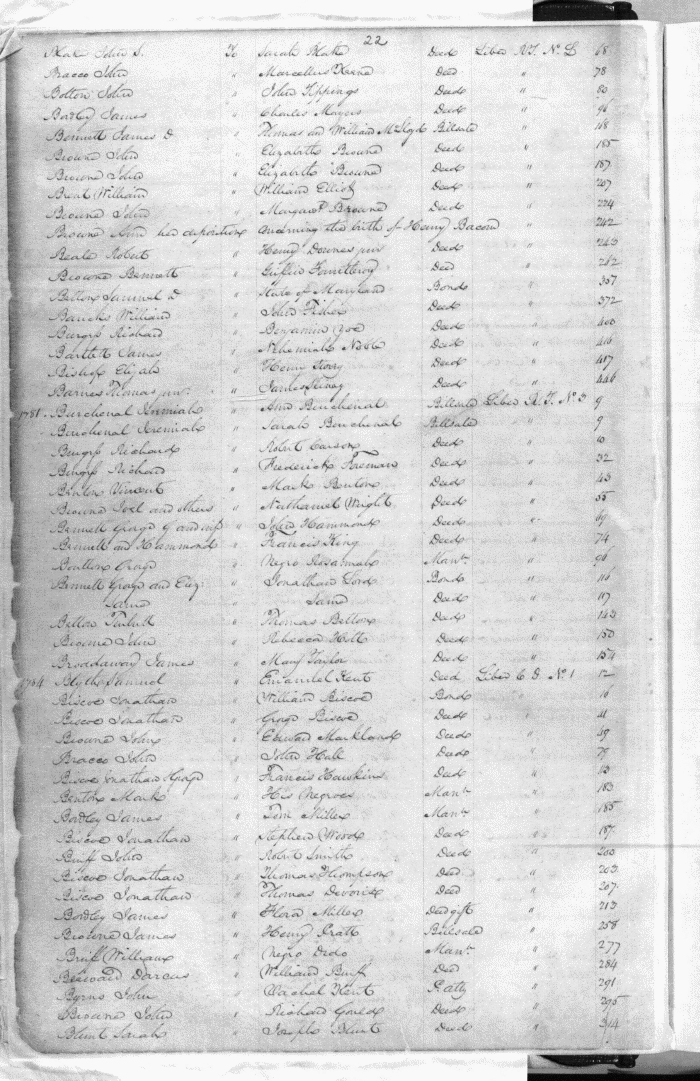 22
Blake John S. To Sarah Blake Deed Liber R.T. No L 68
Bracco John " Marcellus Keene Deed " 78
Bolton John " John Tippings Deed " 80
Bordley James " Charles Deed " 96
Bennett James D " Thomas and William Billsale " 168
Browne John " Elizabeth Browne Deed " 185
Browne John " Elizabeth Browne Deed " 187
William " William Elliott Deed " 207
Browne John " Margaret Browne Deed " 224
Browne Ann her deposition concerning the birth of Henry Bacon " 242
Beale Robert " Henry Downes junr Deed " 243
Browne Bennett " Deed " 262
Betton Samuel " State of Maryland Bond " 357
William " John Fisher Deed " 372
Burgess Richard " Benjamin Deed " 400
Bartlett James " Nehemiah Noble Deed " 416
Bishop Elijah " Henry Deed " 417
Barnes Thomas junr " James Deed " 446
1781 Burchenal Jeremiah " Ann Burchenal Billsale Liber R.T. No 3 9
Burchenal Jeremiah " Sarah Burchenal Billsale " 9
Burgess Richard " Robert Carson Deed " 10
Burgess Richard " Frederick Freeman Deed " 32
Benton Vincent " Mark Benton Deed " 43
Browne Joel and others " Nathaniel Wright Deed " 55
Bennett George G and wife " John Hammond Deed " 69
Bennett and Hammond " Francis King Deed " 74
Boulton George " Negro Rosannah Mann. " 96
Bennett George and Eliz: " Jonathan Lord Bond " 116
Same " Same Deed " 117
Betton Turbutt " Thomas Betton Deed " 143
Browne John " Rebecca Holt Deed " 150
Broadaway James " Mary Taylor Deed " 154
Blyth Samuel " Emanuel Kent Deed Liber C D No 1 12
Biscoe Jonathan " William Biscoe Bond " 16
Biscoe Jonathan " George Biscoe Deed " 41
Browne John " Edward Markland Deed " 49
Bracco John " John Hall Deed " 79
Biscoe Jonathan George " Francis Hawkins Deed "
Benton Mark " His Negroes Mann. " 183
Bordley James " Tom Miller Mann. " 185
Biscoe Jonathan " Stephen Wood Deed " 187
Bruff John " Robert Smith Deed " 200
Biscoe Jonathan " Thomas Thompson Deed " 203
Biscoe Jonathan " Thomas Deed " 207
Bordley James " Flora Miller Deed gift " 213
Browne James " Henry Pratt Billsale " 258
Bruff William " Negro Dido Mann. " 277
Darcus " William Bruff Deed " 284
Byrns John " Rachel Kent P. atty " 291
Browne John " Richard Gould Deed " 295
Blunt Sarah " Joseph Blunt Deed " 314